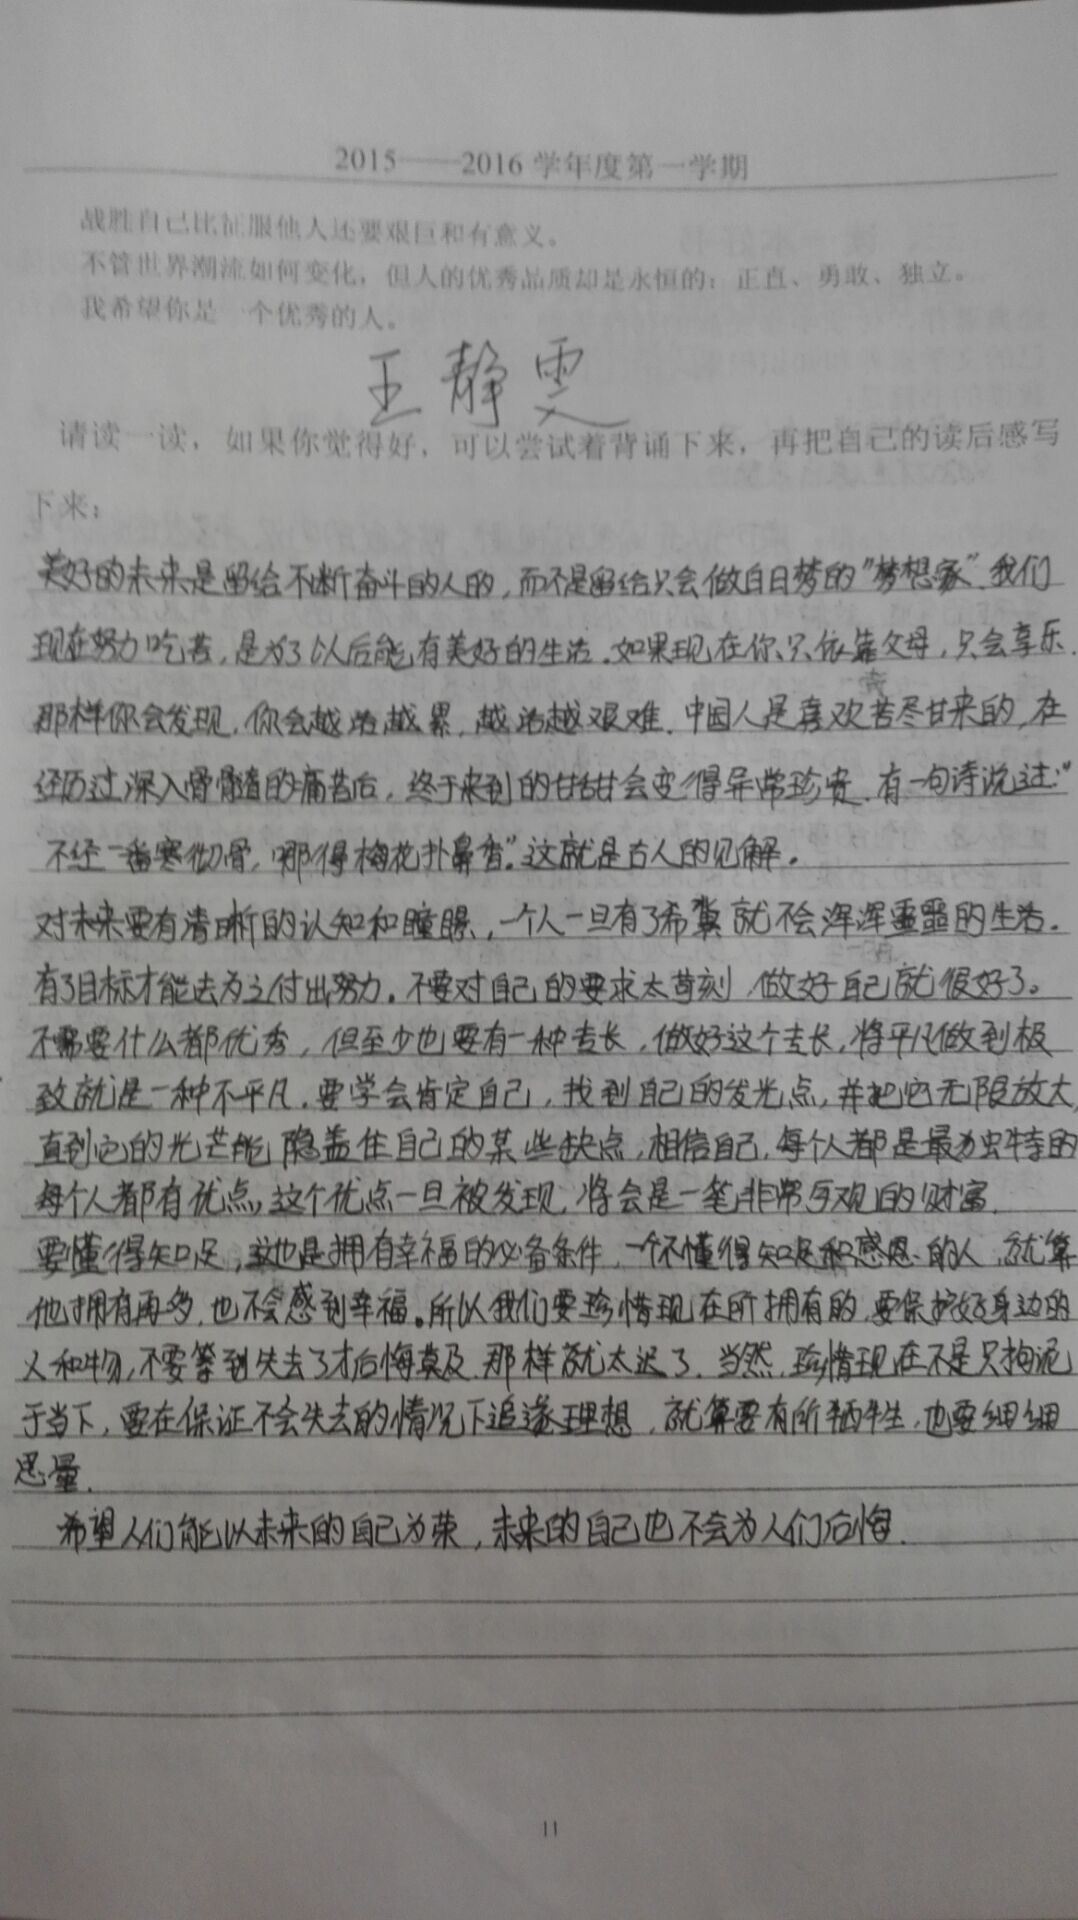 2015——2016学年度第一学期
战胜自己比征服他人还要艰巨和有意义。
不管世界潮流如何变化，但人的优秀品质却是永恒的：正直、勇敢、独立。
我希望你是一个优秀的人。
王静雯
请读一读，如果你觉得好，可以尝试着背诵下来，再把自己的读后感写
下来：
美好的未来是留给不断奋斗的人的，而不是留给只会做白日梦的“梦想家”.我们
现在努力吃苦，是为了以后能有美好的生活.如果现在你只依靠父母，只会享乐.
那样你会发现，你会越活越累，越活越艰难.中国人是喜欢苦尽甘来的，在
经历过深入骨髓的痛苦后，终于来到的甘甜会变得异常珍贵.有一句诗说过:“
不经一番寒彻骨，哪得梅花扑鼻香”.这就是古人的见解.
对未来要有清晰的认知和瞳憬，一个人一旦有了希冀就不会浑浑噩噩的生活.
有了目标才能去为之付出努力。不要对自己的要求太苛刻，做好自己就很好了。
不需要什么都优秀，但至少也要有一种专长，做好这个专长，将平凡做到极
致就是一种不平凡.要学会肯定自己，找到自己的发光点，并把它无限放大，
直到它的光芒能隐盖住自己的某些缺点，相信自己，每个人都是最为独特的
每个人都有优点，这个优点一旦被发现，将会是一笔非常可观的财富.
要懂得知足，这也是拥有幸福的必备条件，一个不懂得知足和感恩的人，就算
他拥有再多，也不会感到幸福。所以我们要珍惜现在所拥有的，要保护好身边的
人和物，不要等到失去了才后悔莫及.那样就太迟了.当然，珍惜现在不是只拘泥
于当下，要在保证不会失去的情况下追逐理想，就算要有所牺牲，也要细细
思量.
希望人们能以未来的自己为荣，未来的自己也不会为人们后悔.
11